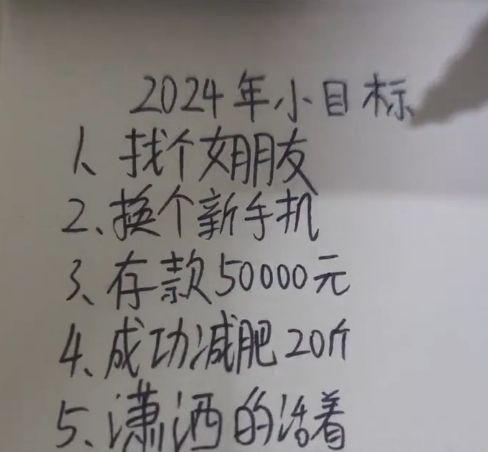 2024年小目标
1、找个女朋友
2、换个新手机
3、存款50000元
4、成功减肥20斤
5、潇洒的活着